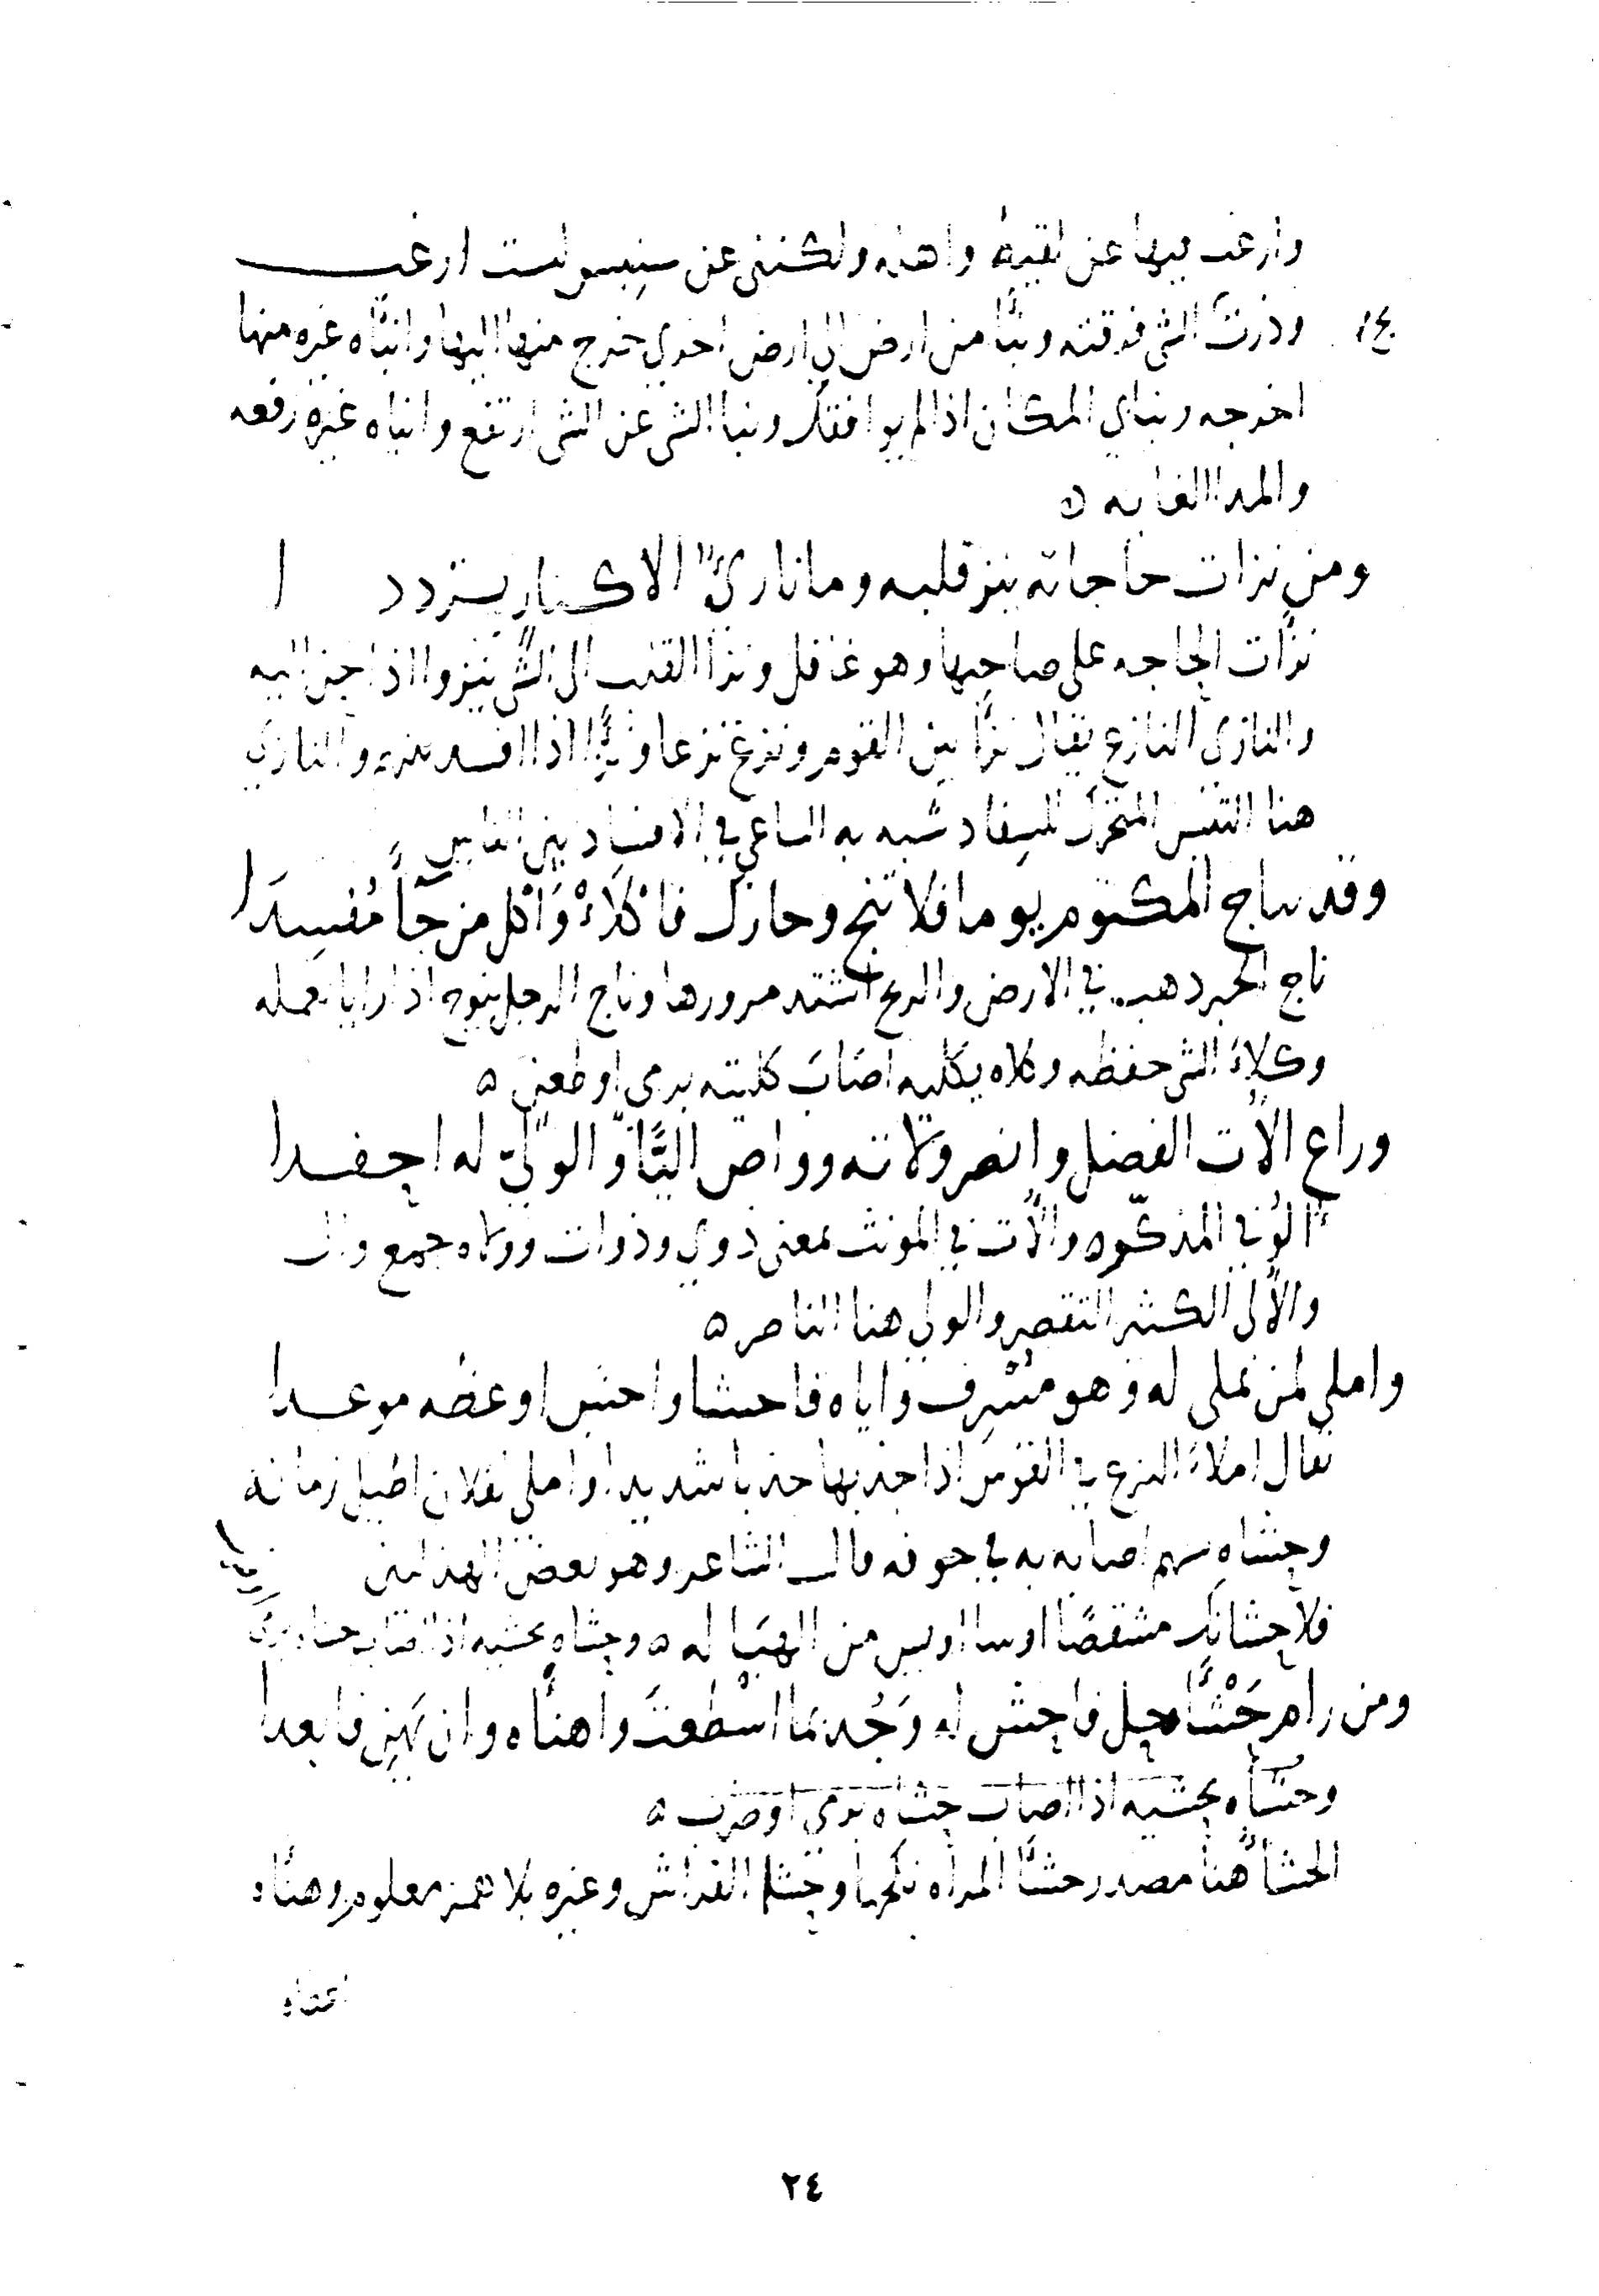 وارغب فيها عن لقيط واهله ولكننى عن سنبس لست ارغب
وذرت الشى فرقته ونبأ من ارض الى ارض اخرى خرج منها اليها وانبأه غيره منها
اخرجه ونبا بى المكان اذا لم يوافقك ونبا الشى عن الشى ارتفع وانباه غيره رفعه
ومن نزات حاجاته ينز قلبه وما نازئ الا كنار يتردد ا
نزأت الحاجه على صاحبها وهو غافل ونزا القلب الى الشى ينزوا اذا حن اليه
والنازئ النازع يقال نزأ بين القوم ونزغ نزغا ونزأ اذا افسد بينهم والنازئ
هنا النفس المتحرك للفساد شبه به الساعي في الافساد بين الناس
وقد ناج المكتوم يوما فلا تنج وحازك فاكلأه واكل من جأ مفسدا
ناج الخبر ذهب في الارض والريح اشتد مرورها وناج الرجل ينوج اذا رايا بعمله
وكلأ الشى حفظه وكلاه يكليه اصاب كليته برمى او طعن ه
وراع الات الفضل وانصر ولاته وواص اليأ والولي له احفدا
الؤ في المذكر والات في المونث بمعنى ذوي وذوات وولاه جمع وال
والألى الكثير التقصير والولي هنا الناصر ه
واملي لمن تملى له وهو مسرف واياه فاحشا واحش او عظه موعدا
يقال املأ النزع في القوس اذا جذبها جذبا شديدا واملى لفلان اطيل زمانه
وحشاه سهم اصابه به في جوفه قال الشاعر وهو بعض الهذليين
فلاحشانك مشقصا اوسا اويس من الهباله ه وحشاه يحشيه اذا اصاب حشاه
ومن رام حشأ حل فاحش له وجد بما اسطعت واهنأه وان يهن فابعدا
وحشاه يحشيه اذا اصاب حشاه برمى او ضرب ه
الحشأ هنا مصدر حشأ المراه نكحها وحشا الفراش وغيره بلا همز معلوم وهنأه
٢٤